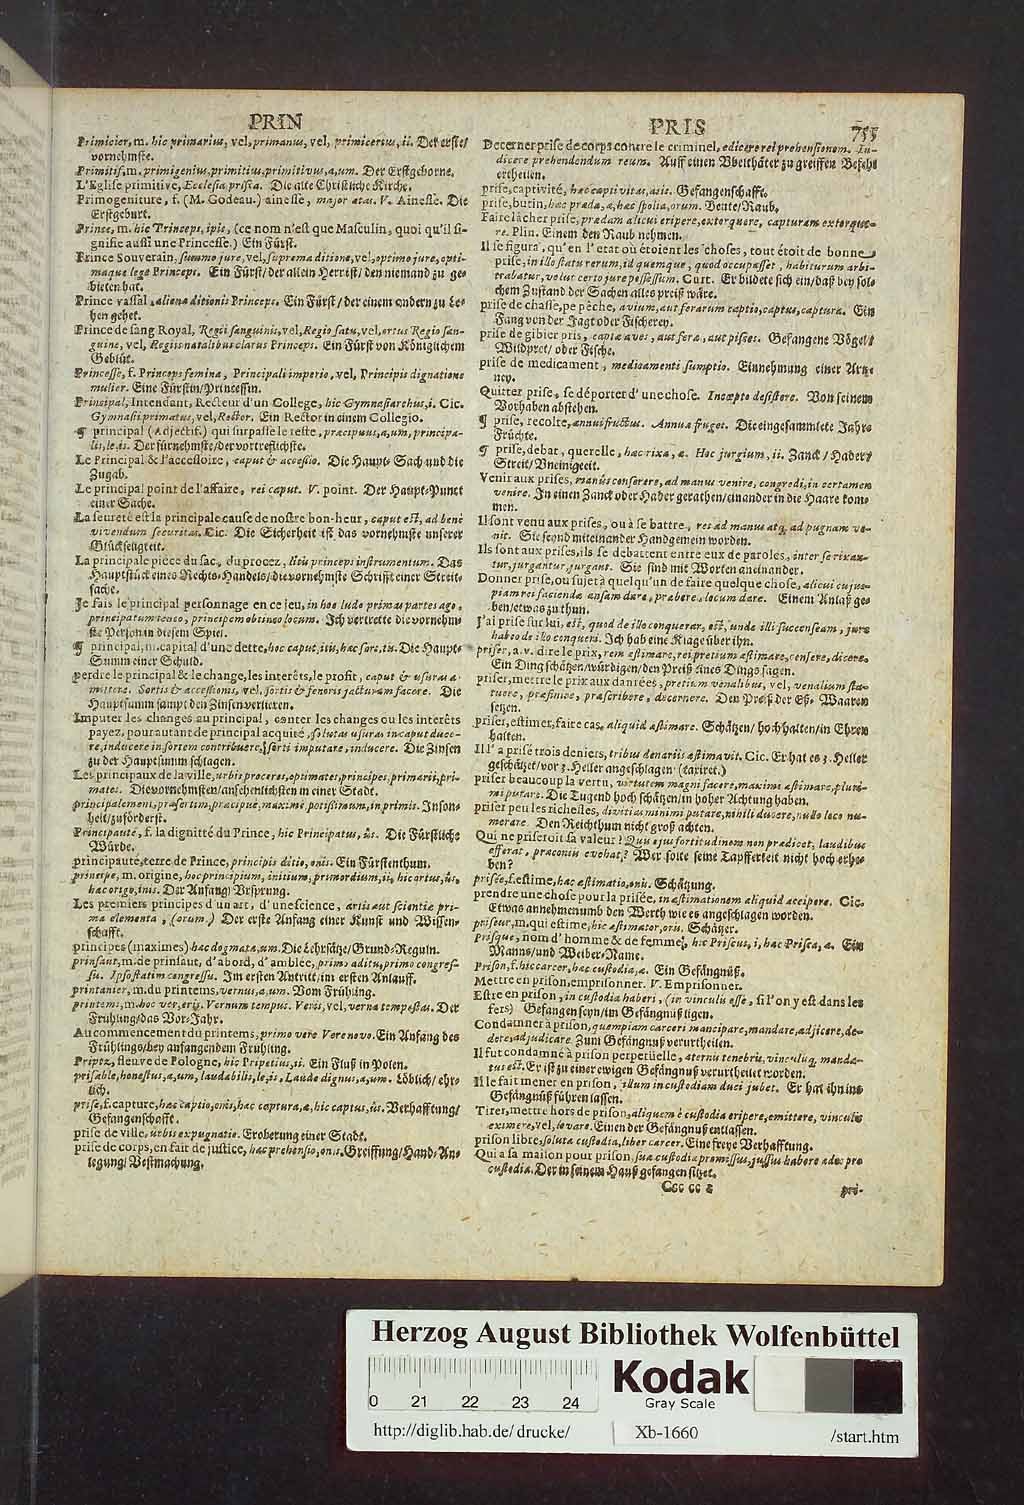 PRIN
Primicier, m. hic primarius, vel, primanus, vel, primicerius, ii. Der erste/
vornehmste.
Primitif, m. primigenius, primitius, primitivus, a, um. Der Erstgeborne.
L'Eglise primitive, Ecclesia prisca. Die alte Christliche Kirche.
Primogeniture, f. (M. Godeau.) ainesse, major ætas. V. Ainesse. Die
Erstgeburt.
Prince, m. hic Princeps, ipis, (ce nom n'est que Masculin, quoi qu'il si-
gnifie aussi une Princesse.) Ein Fürst.
Prince Souverain, summo jure, vel, suprema ditione, vel, optimo jure, opti-
maque lege Princeps. Ein Fürst/ der allein Herrist/ den niemand zu ge-
bieten hat.
Prince vassal, alienæ ditionis Princeps. Ein Fürst/ der einem andern zu Le-
hen gehet.
Prince de sang Royal, Regii sanguinis, vel, Regio satu, vel, ortus Regio san-
guine, vel, Regiis natalibus clarus Princeps. Ein Fürst von Königlichem
Geblüt.
Princesse, f. Princeps femina, Principali imperio, vel, Principis dignatione
mulier. Eine Fürstin/ Princessin.
Principal, Intendant, Recteur d'un College, hic Gymnasiarchus, i. Cic.
Gymnasii primatus, vel, Rector. Ein Rector in einem Collegio.
¶ principal (Adjectif.) qui surpasse le reste, præcipuus, a, um, principa-
lis, le, is. Der fürnehmste/ der vortrefflichste.
Le Principal & l'accessoire, caput & accessio. Die Haupt-Sach und die
Zugab.
Le principal point de l'affaire, rei caput. V. point. Der Haupt-Punct
einer Sache.
La seureté est la principale cause de nostre bon-heur, caput est, ad bene
vivendum securitas. Cic. Die Sicherheit ist das vornehmste unserer
Glückseligkeit.
La principale piece du sac, du procez, litis princeps instrumentum. Das
Hauptstück eines Rechts-Handels/ die vornehmste Schrifft einer Streit-
sache.
Je fais le principal personnage en ce jeu, in hoc ludo primas partes ago,
principatum teneo, principem obtineo locum. Ich vertrette die vornehm-
ste Person in diesem Spiel.
¶ principal, m. capital d'une dette, hoc caput, itis, hæc sors, tis. Die Haupt-
Summ einer Schuld.
perdre le principal & le change, les interêts, le profit, caput & usuras a-
mittere. Sortis & accessionis, vel, sortis & fenoris jacturam facere. Die
Hauptsumm sampt den Zinsen verlieren.
Imputer les changes au principal, conter les changes ou les interêts
payez, pour autant de principal acquité, solutas usuras in caput duce-
re, inducere in sortem contribuere, sorti imputare, inducere. Die Zinsen
zu der Hauptsumm schlagen.
Les principaux de la ville, urbis proceres, optimates, principes, primarii, pri-
mates. Die vornehmsten/ ansehenlichsten in einer Stadt.
principalement, præsertim, præcipuè, maximè, potissimum, in primis. Inson-
heit/ zuförderst.
Principauté, f. la dignitté du Prince, hic Principatus, ûs. Die Fürstliche
Würde.
principauté, terre de Prince, principis ditio, onis. Ein Fürstenthum.
principe, m. origine, hoc principium, initium, primordium, ii, hic ortus, ûs,
hæc origo, inis. Der Anfang/ Ursprung.
Les premiers principes d'un art, d'une science, artis aut scientiæ pri-
ma elementa, (orum.) Der erste Anfang einer Kunst und Wissen-
schafft.
principes (maximes) hæc dogmata, um. Die Lehrsätze/ Grund-Reguln.
prinsaut, m. de prinsaut, d'abord, d'amblée, primo aditu, primo congres-
su. Ipso statim congressu. Im ersten Antritt/ im ersten Anlauff.
printanier, m. du printems, vernus, a, um. Vom Frühling.
printems, m. hoc ver, eris. Vernum tempus. Veris, vel, verna tempestas. Der
Frühling/ das Vor-Jahr.
Au commencement du printems, primo vere. Vere novo. Ein Anfang des
Frühlings/ bey anfangendem Frühling.
Pripetz, fleuve de Pologne, hic Pripetius, ii. Ein Fluß in Polen.
prisable, honestus, a, um, laudabilis, le, is, Laude dignus, a, um. Löblich/ ehr-
lich.
prise, f. capture, hæc captio, onis, hæc captura, æ, hic captus, ûs. Verhafftung/
Gefangenschafft.
prise de ville, urbis expugnatio. Eroberung einer Stadt.
prise de corps, en fait de justice, hæc prehensio, onis. Greiffung/ Hand-An-
legung/ Vestmachung.
PRIS
755
Decerner prise de corps contre le criminel, edicere rei prehensionem. In-
dicere prehendendum reum. Auff einen Ubelthäter zu greiffen Befehl
ertheilen.
prise, captivité, hæc captivitas, atis. Gefangenschafft.
prise, butin, hæc præda, æ, hæc spolia, orum. Beute/ Raub.
Faire lâcher prise, prædam alicui eripere, extorquere, capturam extorque-
re. Plin. Einem den Raub nehmen.
Il se figura, qu'en l'etat où étoient les choses, tout étoit de bonne
prise, in illo statu rerum, id quemque, quod occupasset, habiturum arbi-
trabatur, velut certo jure possessum. Curt. Er bildete sich ein/ daß bey sol-
chem Zustand der Sachen alles preiß wäre.
prise de chasse, pe pêche, avium, aut ferarum captio, captus, captura. Ein
Fang von der Jagt oder Fischerey.
prise de gibier pris, captæ aves, aut feræ, aut pisces. Gefangene Vögel/
Wildpret/ oder Fische.
prise de medicament, medicamenti sumptio. Einnehmung einer Artz-
ney.
Quitter prise, se déporter d'une chose. Incepto desistere. Von seinem
Vorhaben abstehen.
¶ prise, recolte, annus fructus. Annuæ fruges. Die eingesammlete Jahrs
Früchte.
¶ prise, debat, querelle, hæc rixa, æ. Hoc jurgium, ii. Zanck/ Hader/
Streit/ Uneinigkeit.
Venir aux prises, manûs conserere, ad manus venire, congredi, in certamen
venire. In einen Zanck oder Hader gerathen/ einander in die Haare kom-
men.
Il sont venu aux prises, ou à se battre, res ad manus atq; ad pugnam ve-
nit. Sie seynd miteinander Handgemein worden.
Ils sont aux prises, ils se debattent entre eux de paroles, inter se rixan-
tur, jurgantur, jurgant. Sie sind mit Worten aneinander.
Donner prise, ou sujet à quelqu'un de faire quelque chose, alicui cujus-
piam rei faciendæ ansam dare, præbere, locum dare. Einem Anlaß ge-
ben/ etwas zu thun.
J'ai prise sur lui, est, quod de illo conquerar, est, unde illi succenseam, jure
habeo de illo conqueri. Ich hab eine Klage über ihn.
priser, a. v. dire le prix, rem æstimare, rei pretium æstimare, censere, dicere.
Ein Ding schätzen/ würdigen/ den Preiß eines Dings sagen.
priser, mettre le prix aux danrées, pretium venalibus, vel, venalium sta-
tuere, præfinire, præscribere, decernere. Den Preiß der Eß-Waaren
setzen.
priser, estimer, faire cas, aliquid æstimare. Schätzen/ hoch halten/ in Ehren
halten.
Il l'a prisé trois deniers, tribus denariis æstimavit. Cic. Er hat es 3. Heller
geschätzt/ vor 3. Heller angeschlagen (taxiret.)
priser beaucoup la vertu, virtutem magni facere, maximi æstimare, pluri-
mi putare. Die Tugend hoch schätzen/ in hoher Achtung haben.
priser peu les richesses, divitias minimi putare, nihili ducere, nullo loco nu-
merare. Den Reichthum nicht groß achten.
Qui ne priseroit sa valeur? Quis ejus fortitudinem non prædicet, laudibus
efferat, præconiis evehat? Wer solte seine Tapfferkeit nicht hoch erhe-
ben?
prisée, f. estime, hæc æstimatio, onis. Schätzung.
prendre une chose pour la prisée, in æstimationem aliquid accipere. Cic.
Etwas annehmen umb den Werth wie es angeschlagen worden.
priseur, m. qui estime, hic æstimator, oris. Schätzer.
Prisque, nom d'homme & de femme, hic Priscus, i, hæc Prisca, æ. Ein
Manns/ und Weiber-Name.
Prison, f. hic carcer, hæc custodia, æ. Ein Gefängnüß.
Mettre en prison, emprisonner. V. Emprisonner.
Estre en prison, in custodia haberi, (in vinculis esse, si l'on y est dans les
fers) Gefangen seyn/ im Gefängnüß ligen.
Condamner à prison, quempiam carceri mancipare, mandare, adjicere, de-
dere, adjudicare. Zum Gefängnüß verurtheilen.
Il fut condamné à prison perpetüelle, æternis tenebris, vinculisq; manda-
tus est. Er ist zu einer ewigen Gefängnuß verurtheilet worden.
Il le fait mener en prison, illum in custodiam duci jubet. Er hat ihn ins
Gefängnüß führen lassen.
Tirer, mettre hors de prison, aliquem è custodia eripere, emittere, vinculis
eximere, vel, levare. Einen der Gefängnuß entlassen.
prison libre, soluta custodia, liber carcer. Eine freye Verhafftung.
Qui a sa maison pour prison, suæ custodiæ promissus, jussus habere ædes pro
custodia. Der in seinem Hauß gefangen sitzet.
Ccc cc 2
pri-
Herzog August Bibliothek Wolfenbüttel
0 21 22 23 24
Kodak
Gray Scale
http://diglib.hab.de/ drucke/
Xb-1660
/start.htm